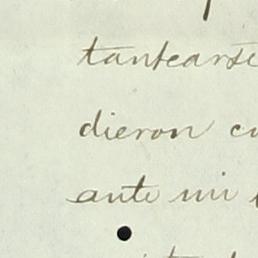 tantearse
dieron
ante mi